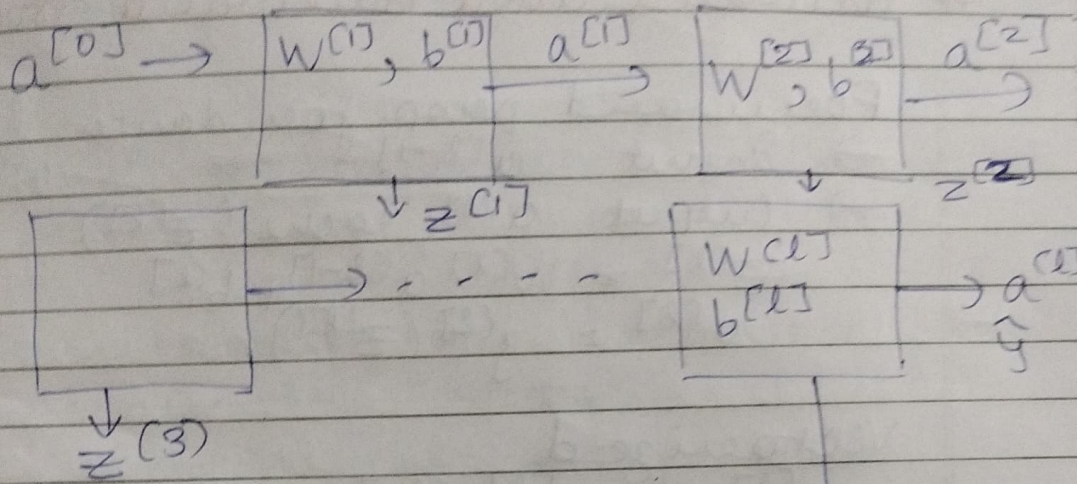 a^[0] → W^[1], b^[1] a^[1] → W^[2], b^[2] a^[2] →
↓ z^[1] ↓ z^[2]
→ - - - - W^[l] → a^[l]
b^[l] ŷ
↓ z^(3)